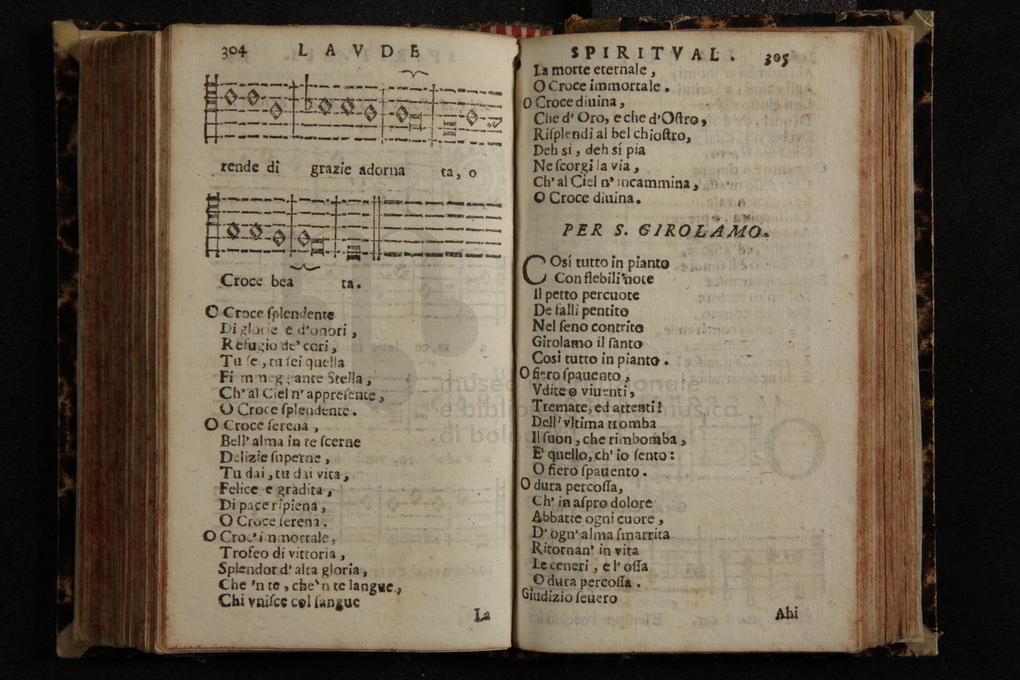 304 LAVDE
rende di grazie adorna ta, o
Croce bea ta.
O Croce ſplendente
Di glorie e d'onori,
Refugio de' cori,
Tu ſe, tu ſei quella
Fiammeggiante Stella,
Ch' al Ciel n' appreſente,
O Croce ſplendente.
O Croce ſerena,
Bell' alma in te ſcerne
Delizie ſuperne,
Tu dai, tu dai vita,
Felice e gradita,
Di pace ripiena,
O Croce ſerena.
O Croce immortale,
Trofeo di vittoria,
Splendor d' alta gloria,
Che 'n te, che 'n te langue,
Chi vniſce col ſangue
La
SPIRITVAL. 305
La morte eternale,
O Croce immortale.
O Croce diuina,
Che d' Oro, e che d' Oſtro,
Riſplendi al bel chioſtro,
Deh si, deh sí pia
Ne ſcorgi la via,
Ch' al Ciel n' incammina,
O Croce diuina.
PER S. GIROLAMO.
COsí tutto in pianto
Con flebili note
Il petto percuote
De falli pentito
Nel ſeno contrito
Girolamo il ſanto
Cosi tutto in pianto.
O fiero ſpauento,
Vdite o viuenti,
Tremate, ed attenti!
Dell' vltima tromba
Il ſuon, che rimbomba,
E' quello, ch' io ſento:
O fiero ſpauento.
O dura percoſſa,
Ch' in aſpro dolore
Abbatte ogni cuore,
D' ogn' alma ſmarrita
Ritornan' in vita
Le ceneri, e l' oſſa
O dura percoſſa.
Giudizio ſeuero
Ahi
museo internazionale
e biblioteca della musica
di bologna